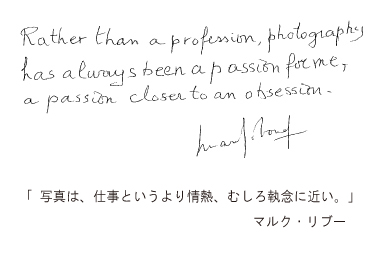 Rather than a profession, photography
has always been a passion for me,
a passion closer to an obsession.
「 写真は、仕事というより情熱、むしろ執念に近い。」
マルク・リブー